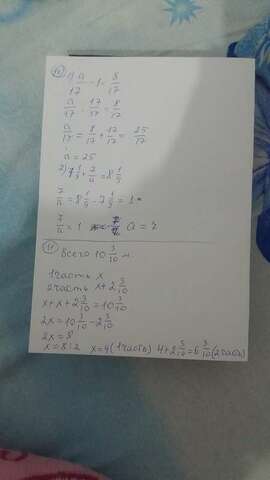 10) 1) a/17 - 1 = 8/17
a/17 - 17/17 = 8/17
a/17 = 8/17 + 17/17 = 25/17
a = 25
2) 7 1/9 + 7/a = 8 1/9
7/a = 8 1/9 - 7 1/9 = 1
7/a = 1 a = 7
11) Всего 10 3/10 м.
1 часть x
2 часть x + 2 3/10
x + x + 2 3/10 = 10 3/10
2x = 10 3/10 - 2 3/10
2x = 8
x = 8 : 2 x = 4 (1 часть) 4 + 2 3/10 = 6 3/10 (2 часть)